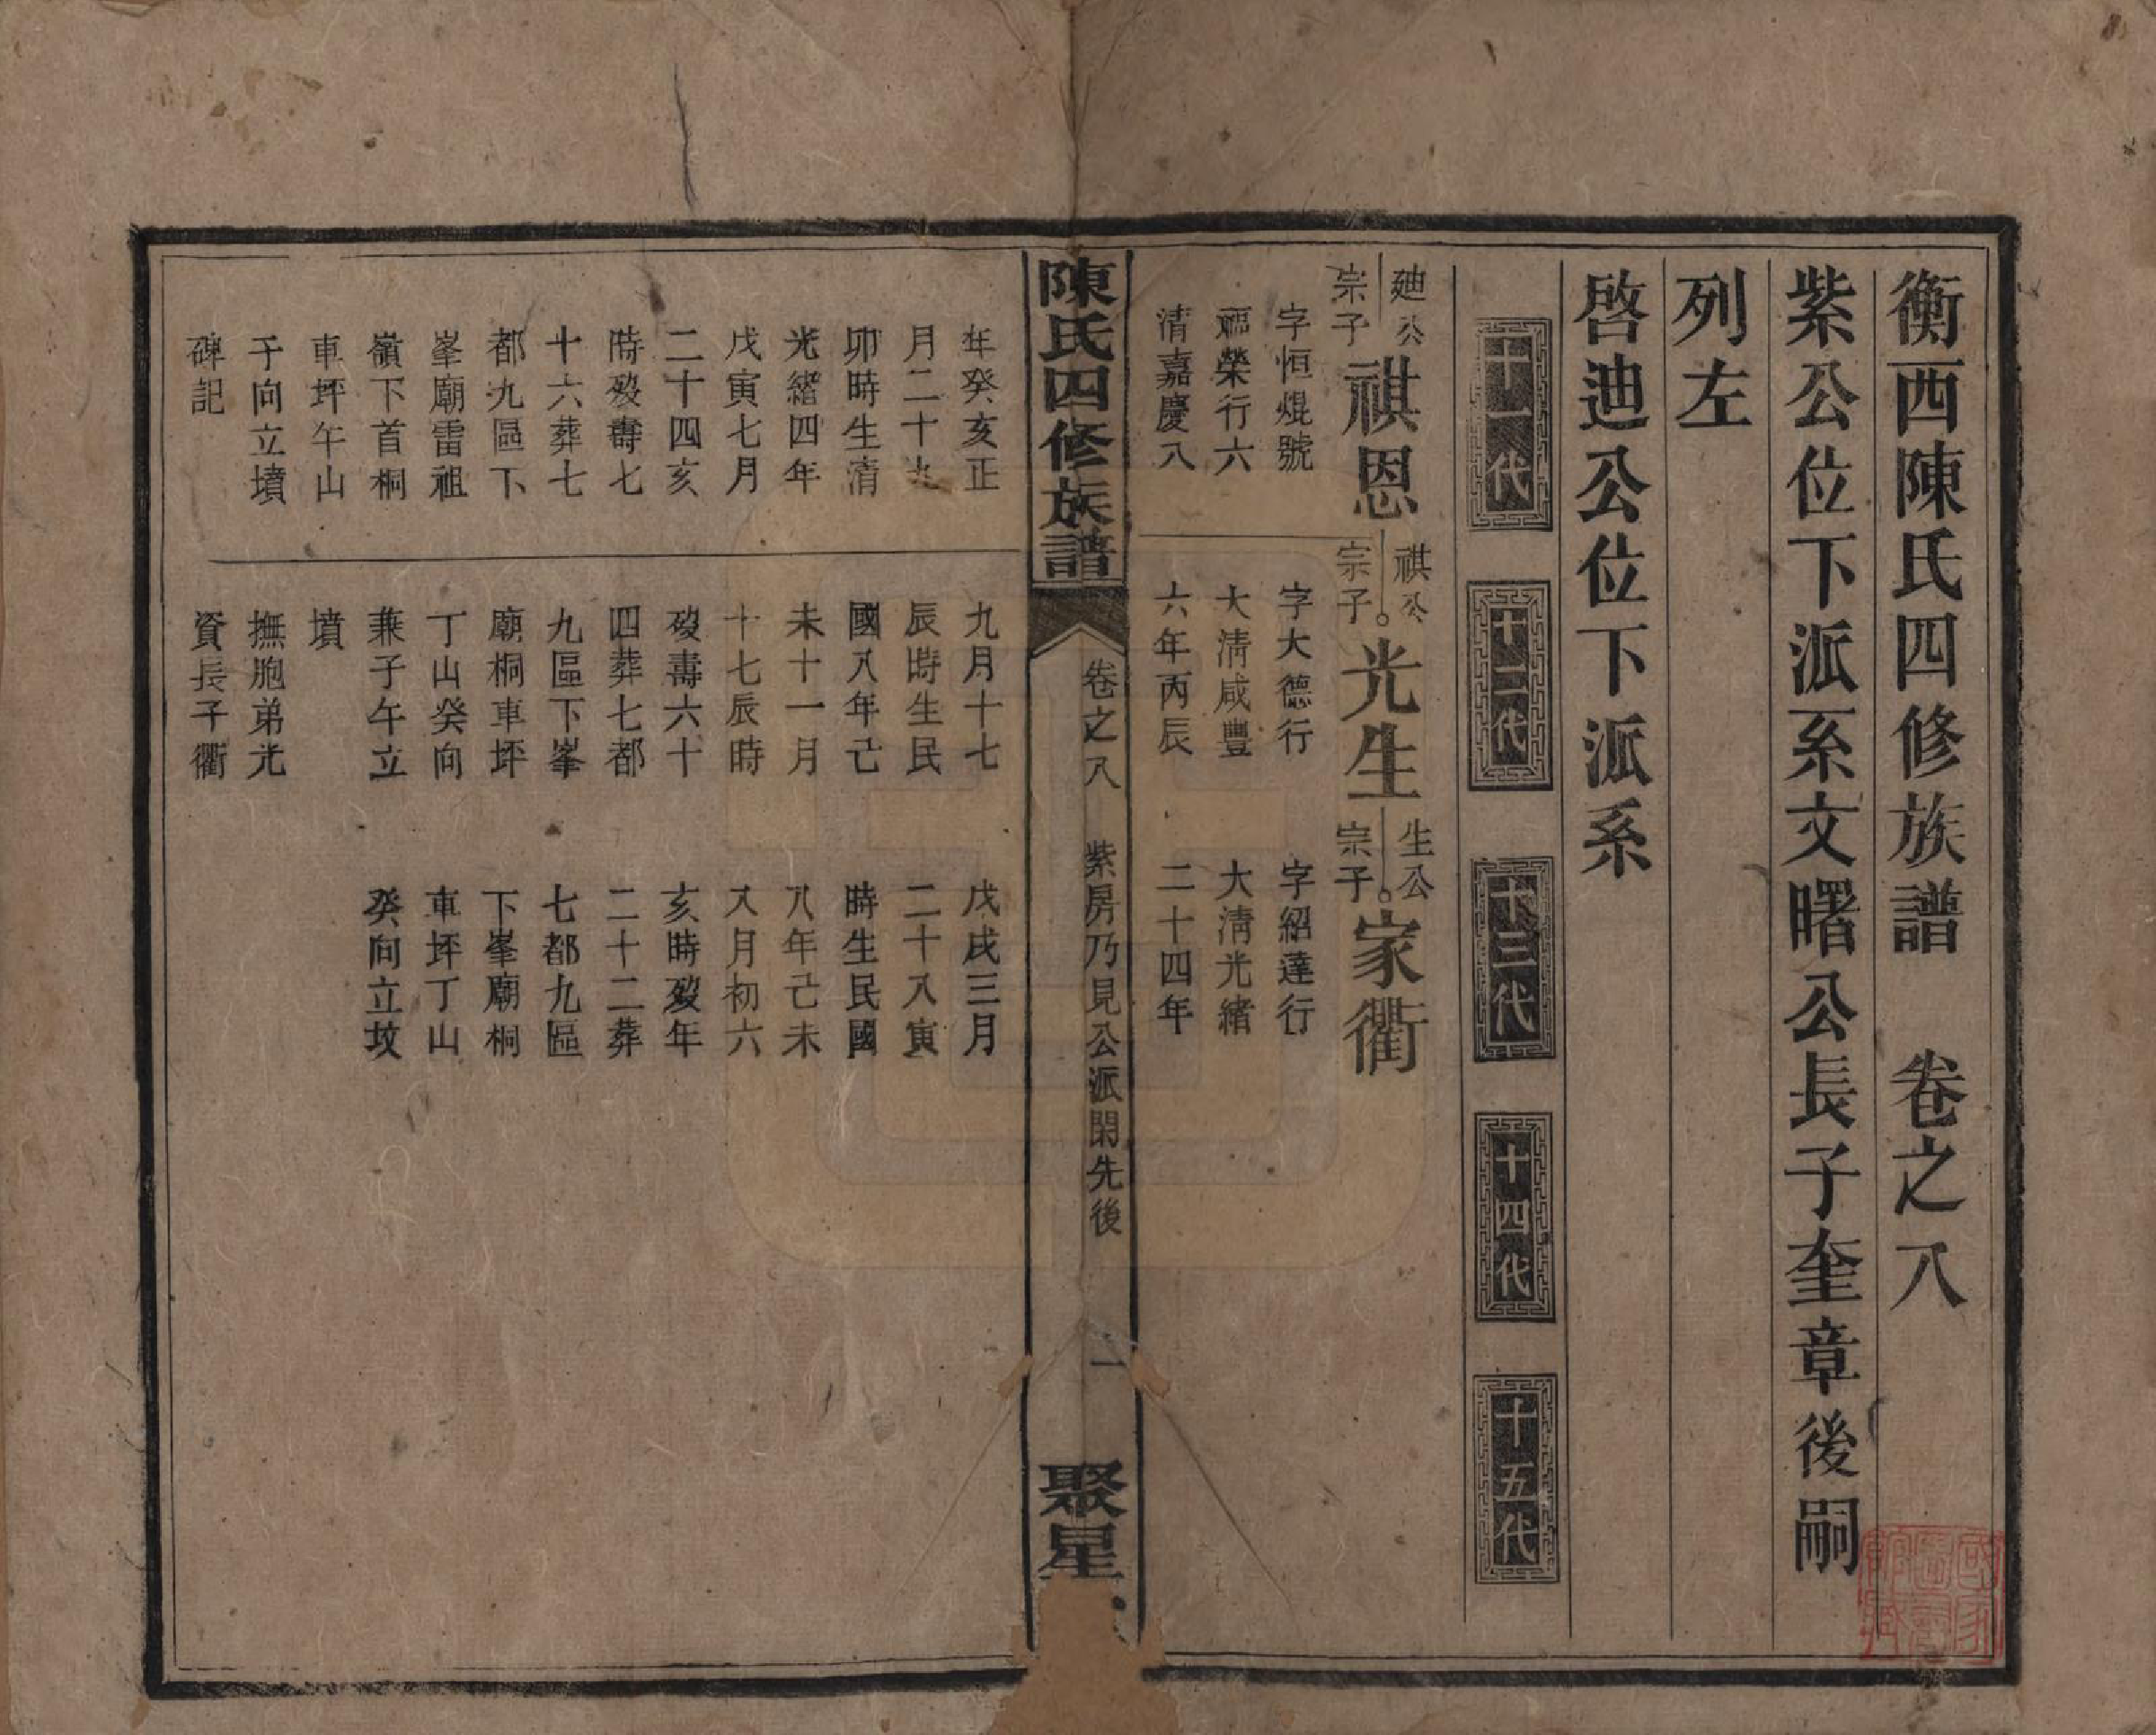 衡西陳氏四修族譜　卷之八
紫公位下派系文曙公長子奎章後嗣
列左
啓迪公位下派系
十一代
十二代
十三代
十四代
十五代
迪公
宗子
祺恩
祺公
宗子
光生
生公
宗子
家衢
字恒焜號
福榮行六
清嘉慶八
字大德行
大清咸豐
六年丙辰
字紹達行
大清光緒
二十四年
陳氏四修族譜
卷之八
紫房乃見公派閑先後
一
聚星
年癸亥正
月二十九
卯時生清
光緒四年
戊寅七月
二十四亥
時歿壽七
十六葬七
都九區下
峯廟雷祖
嶺下首桐
車坪午山
子向立墳
碑記
九月十七
辰時生民
國八年己
未十一月
十七辰時
歿壽六十
四葬七都
九區下峯
廟桐車坪
丁山癸向
兼子午立
墳
撫胞弟光
資長子衢
戊戌三月
二十八寅
時生民國
八年己未
八月初六
亥時歿年
二十二葬
七都九區
下峯廟桐
車坪丁山
癸向立坟